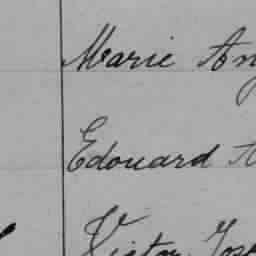 Marie An
Edouard A
Victor Jose